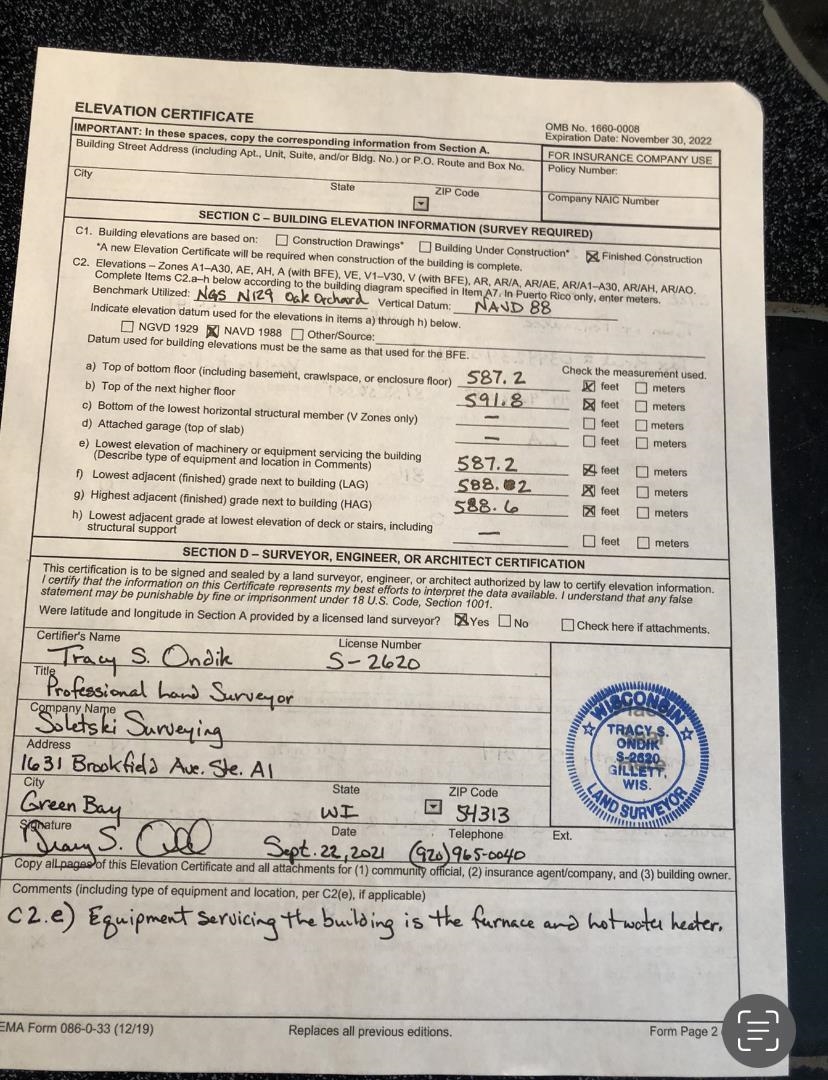 ELEVATION CERTIFICATE
OMB No. 1660-0008
Expiration Date: November 30, 2022
IMPORTANT: In these spaces, copy the corresponding information from Section A.
FOR INSURANCE COMPANY USE
Building Street Address (including Apt., Unit, Suite, and/or Bldg. No.) or P.O. Route and Box No.
Policy Number:
City State ZIP Code
Company NAIC Number
SECTION C – BUILDING ELEVATION INFORMATION (SURVEY REQUIRED)
C1. Building elevations are based on: Construction Drawings* Building Under Construction* Finished Construction
*A new Elevation Certificate will be required when construction of the building is complete.
C2. Elevations – Zones A1–A30, AE, AH, A (with BFE), VE, V1–V30, V (with BFE), AR, AR/A, AR/AE, AR/A1–A30, AR/AH, AR/AO.
Complete Items C2.a–h below according to the building diagram specified in Item A7. In Puerto Rico only, enter meters.
Benchmark Utilized: NGS N129 Oak Orchard Vertical Datum: NAVD 88
Indicate elevation datum used for the elevations in items a) through h) below.
NGVD 1929 NAVD 1988 Other/Source:
Datum used for building elevations must be the same as that used for the BFE.
Check the measurement used.
a) Top of bottom floor (including basement, crawlspace, or enclosure floor) 587.2 feet meters
b) Top of the next higher floor 591.8 feet meters
c) Bottom of the lowest horizontal structural member (V Zones only) – feet meters
d) Attached garage (top of slab) – feet meters
e) Lowest elevation of machinery or equipment servicing the building
(Describe type of equipment and location in Comments) 587.2 feet meters
f) Lowest adjacent (finished) grade next to building (LAG) 588.2 feet meters
g) Highest adjacent (finished) grade next to building (HAG) 588.6 feet meters
h) Lowest adjacent grade at lowest elevation of deck or stairs, including
structural support – feet meters
SECTION D – SURVEYOR, ENGINEER, OR ARCHITECT CERTIFICATION
This certification is to be signed and sealed by a land surveyor, engineer, or architect authorized by law to certify elevation information.
I certify that the information on this Certificate represents my best efforts to interpret the data available. I understand that any false
statement may be punishable by fine or imprisonment under 18 U.S. Code, Section 1001.
Were latitude and longitude in Section A provided by a licensed land surveyor? Yes No Check here if attachments.
Certifier's Name License Number
Tracy S. Ondik S-2620
Title
Professional Land Surveyor
Company Name
Soletski Surveying
Address
1631 Brookfield Ave. Ste. A1
City State ZIP Code
Green Bay WI 54313
Signature Date Telephone Ext.
Tracy S. Sept. 22, 2021 (920)965-0040
WISCONSIN
TRACY S.
ONDIK
S-2620
GILLETT,
WIS.
LAND SURVEYOR
Copy all pages of this Elevation Certificate and all attachments for (1) community official, (2) insurance agent/company, and (3) building owner.
Comments (including type of equipment and location, per C2(e), if applicable)
C2.e) Equipment servicing the building is the furnace and hot water heater.
EMA Form 086-0-33 (12/19) Replaces all previous editions. Form Page 2